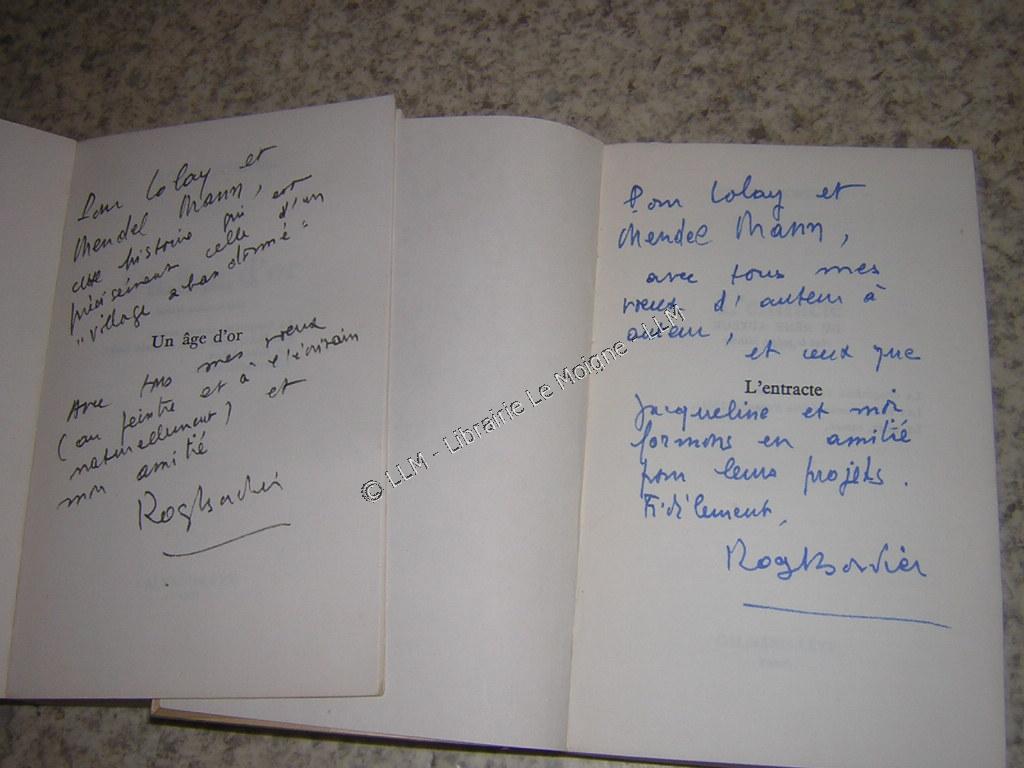 Pour Lolay et
Mendel Mann,
cette histoire qui est
précisément celle d'un
"village abandonné".
Un âge d'or
Avec tous mes vœux
(au peintre et à l'écrivain
naturellement) et
mon amitié
Pour Lolay et
Mendel Mann,
avec tous mes
vœux d'auteur à
auteur, et ceux que
L'entracte
Jacqueline et moi
formons en amitié
pour leurs projets.
Fidèlement,
© LLM - Librairie Le Moigne - LLM